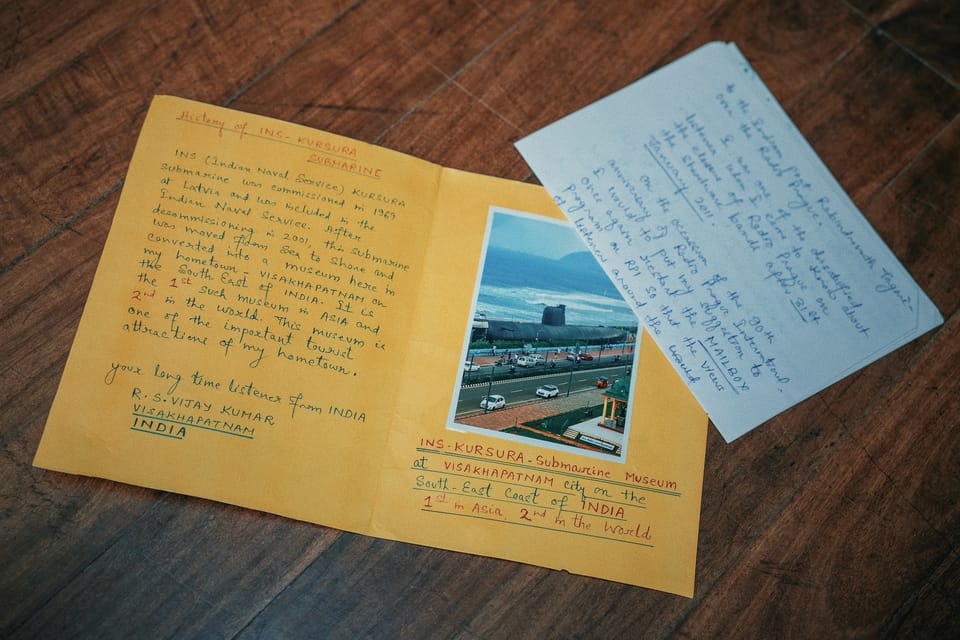 History of INS-KURSURA
SUBMARINE
INS (Indian Naval Service) KURSURA
submarine was commissioned in 1969
at Latvia and was included in the
Indian Naval Service. After
decommissioning in 2001, this submarine
was moved from Sea to Shore and
converted into a museum here in
my hometown - VISAKHAPATNAM on
the South East of INDIA. It is
the 1st such museum in ASIA and
2nd in the world. This museum is
one of the important tourist
attractions of my hometown.
your long time listener from INDIA
R. S. VIJAY KUMAR
VISAKHAPATNAM
INDIA
INS-KURSURA-Submarine Museum
at VISAKHAPATNAM city on the
South-East Coast of INDIA
1st in Asia, 2nd in the World
I am one of the
listeners of Radio Prague
the closure of
the Shortwave bands after 31st
January 2011.
on the occasion of the 90th
anniversary of Radio Prague
I would to put my suggestion to
once again restart the MAILBOX
programme on RPI so that the views
of listeners around the world